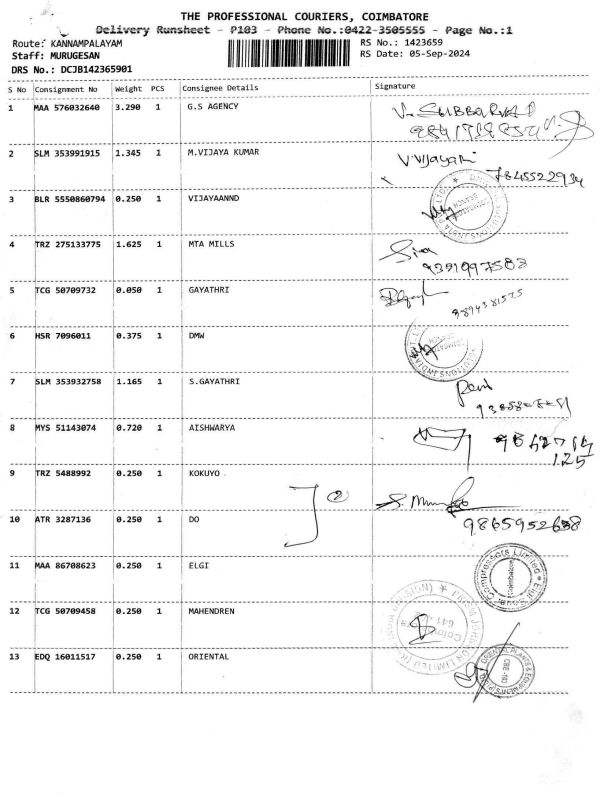 THE PROFESSIONAL COURIERS, COIMBATORE
Delivery Runsheet - P103 - Phone No.:0422-3505555 - Page No.:1
Route: KANNAMPALAYAM
RS No.: 1423659
Staff: MURUGESAN
RS Date: 05-Sep-2024
DRS No.: DCJB142365901
S No Consignment No Weight PCS Consignee Details Signature
1 MAA 576032640 3.290 1 G.S AGENCY
2 SLM 353991915 1.345 1 M.VIJAYA KUMAR
V.Vijayan
7845522934
3 BLR 5550860794 0.250 1 VIJAYAANND
4 TRZ 275133775 1.625 1 MTA MILLS
Siva
9391097583
5 TCG 50709732 0.050 1 GAYATHRI
9894381575
6 HSR 7096011 0.375 1 DMW
7 SLM 353932758 1.165 1 S.GAYATHRI
8 MYS 51143074 0.720 1 AISHWARYA
125
9 TRZ 5488992 0.250 1 KOKUYO
2
10 ATR 3287136 0.250 1 DO
9865952638
11 MAA 86708623 0.250 1 ELGI
Compressors Limited
Coimbatore
12 TCG 50709458 0.250 1 MAHENDREN
13 EDQ 16011517 0.250 1 ORIENTAL